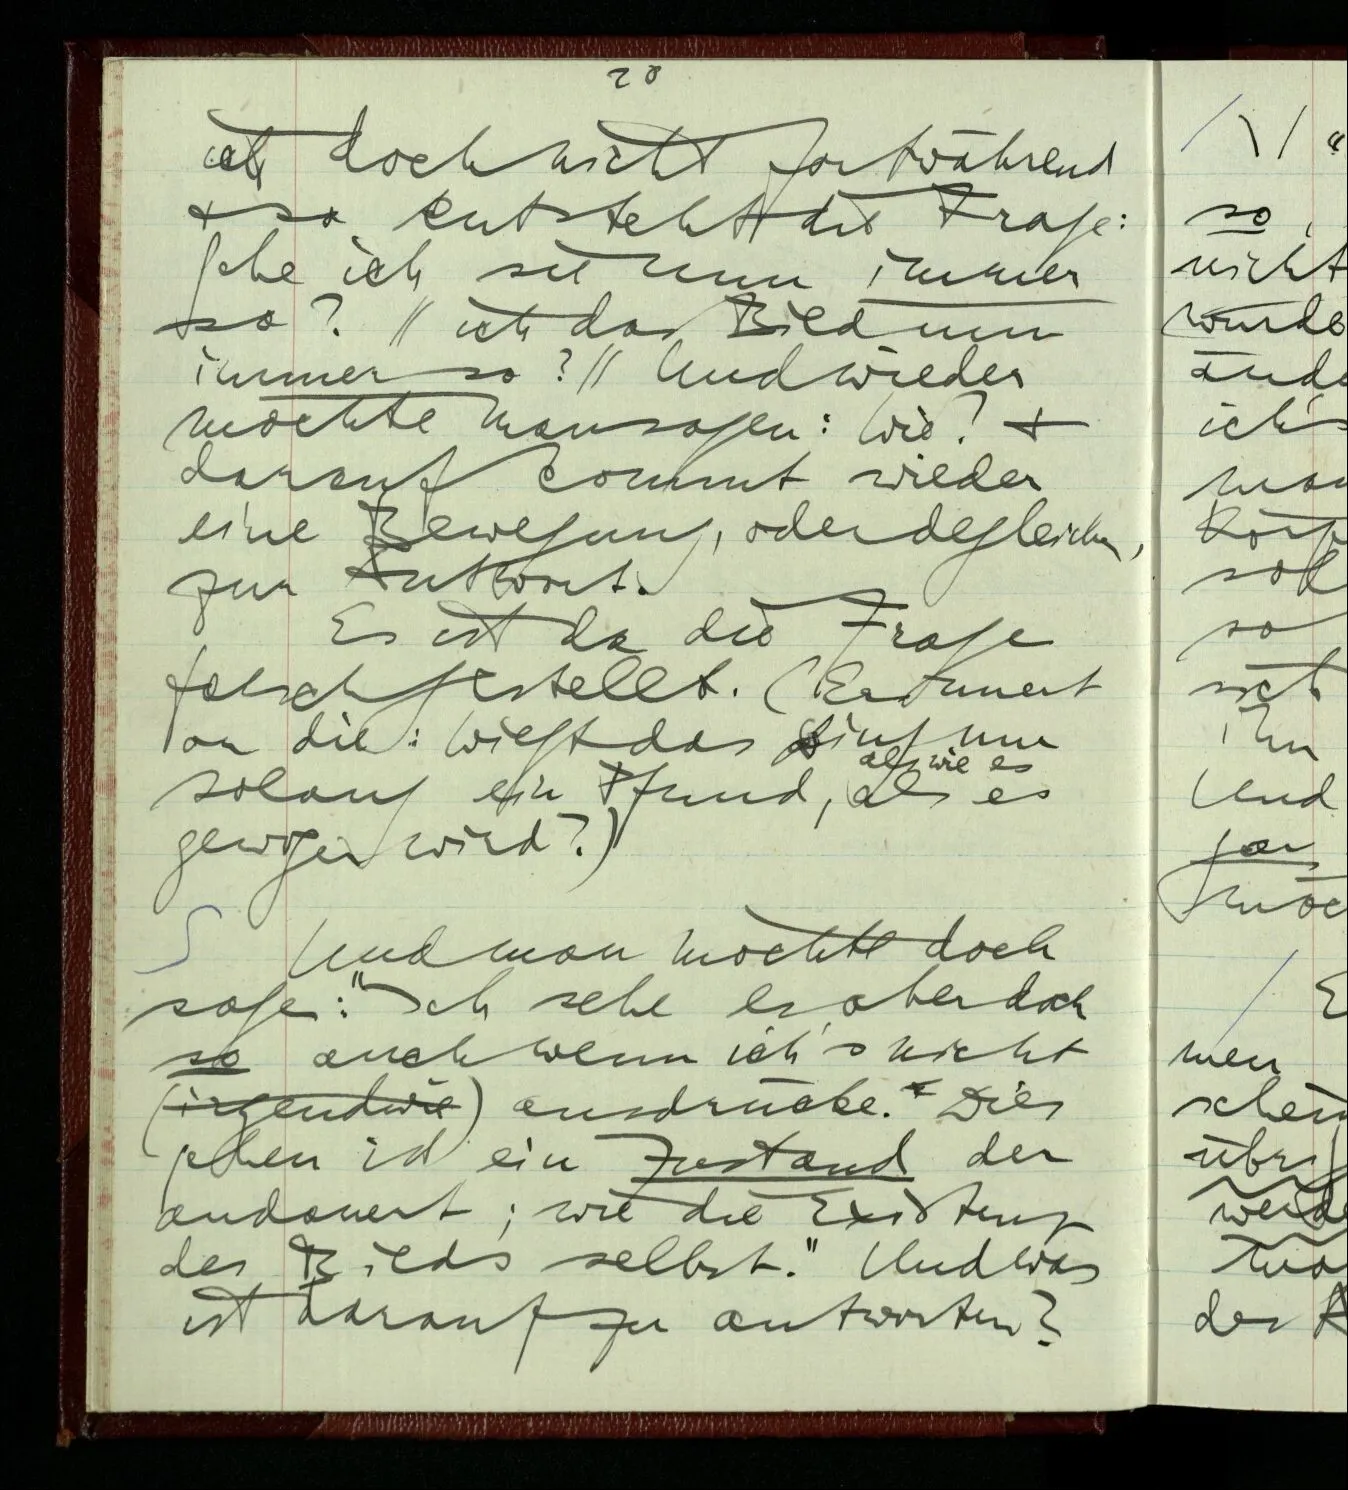 20
ich doch nicht fortwährend
+ so entsteht die Frage:
sehe ich sie nun immer
so? // ist das Bild nun
immer so? // Und wieder
möchte man sagen: Wie? +
darauf kommt wieder
eine Bewegung, oder dergleichen,
zur Antwort.
Es ist da die Frage
falsch gestellt. (Erinnert
an die: Wiegt das Ding nur
als wie es
solang ein Pfund, als es
gewogen wird?)
S Und man möchte doch
sagen: "Ich sehe es aber doch
so auch wenn ich's nicht
(irgendwie) ausdrücke." Dies
sehen ist ein Zustand der
andauert; wie die Existenz
des Bilds selbst." Und was
ist darauf zu antworten?
/ \ / "
so,
nicht
wurde
ände
ich's
man
Körp
sol
so
sich
ihn
Und
möc
/ E
men
schein
übrig
werde
der